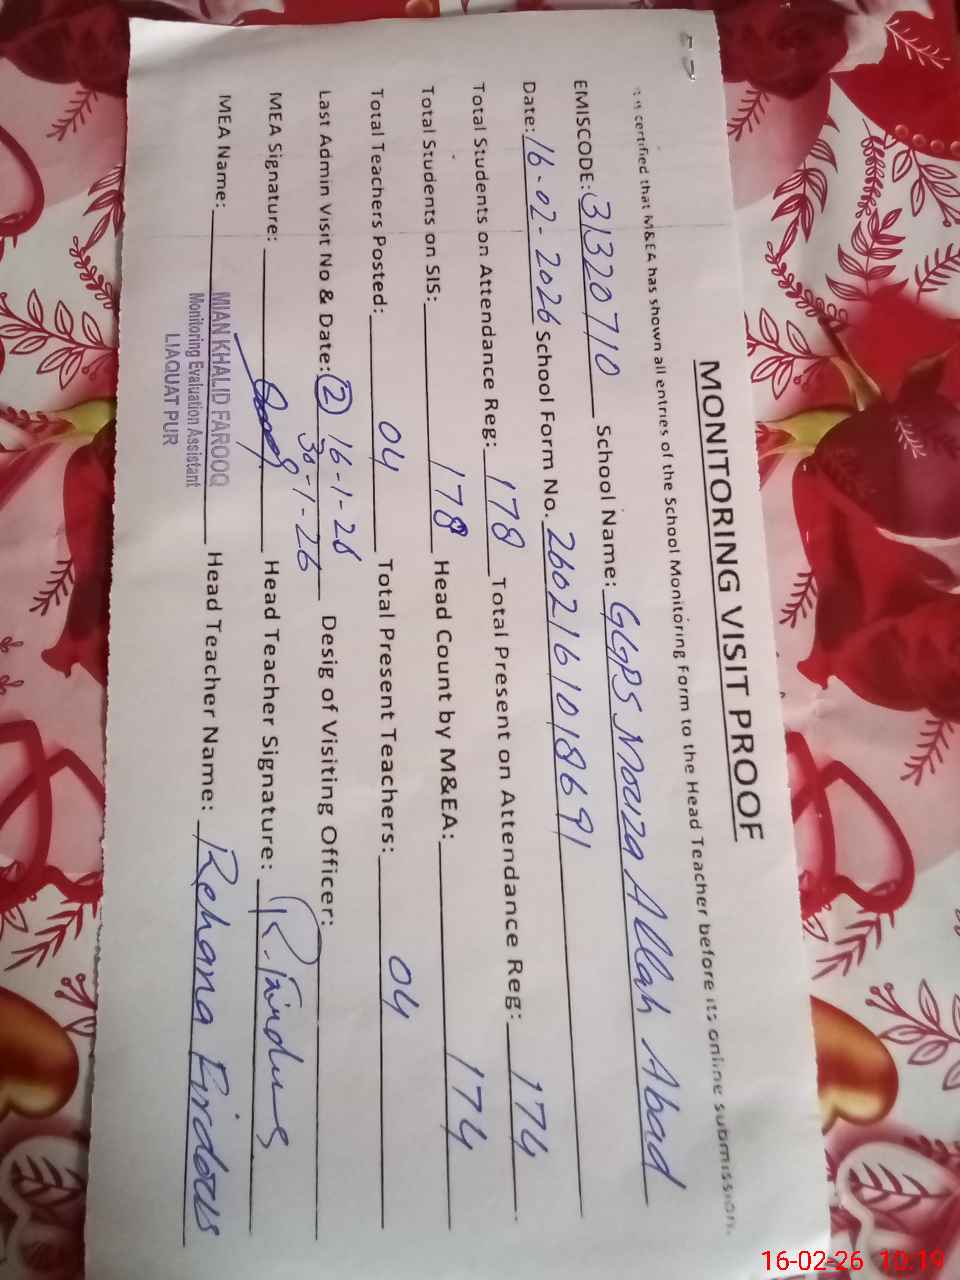 MONITORING VISIT PROOF
certified that M&EA has shown all entries of the School Monitoring Form to the Head Teacher before its online submission.
EMISCODE: 31320710 School Name: GGPS Mouza Allah Abad
Date: 16-02-2026 School Form No. 2602161018691
Total Students on Attendance Reg: 178 Total Present on Attendance Reg: 174
Total Students on SIS: 178 Head Count by M&EA: 174
Total Teachers Posted: 04 Total Present Teachers: 04
Last Admin Visit No & Date: (2) 16-1-26 Desig of Visiting Officer:
30-1-26
MEA Signature: Head Teacher Signature: R. Firdous
MEA Name: MIAN KHALID FAROOQ Head Teacher Name: Rehana Firdous
Monitoring Evaluation Assistant
LIAQUAT PUR
16-02-26 10:19